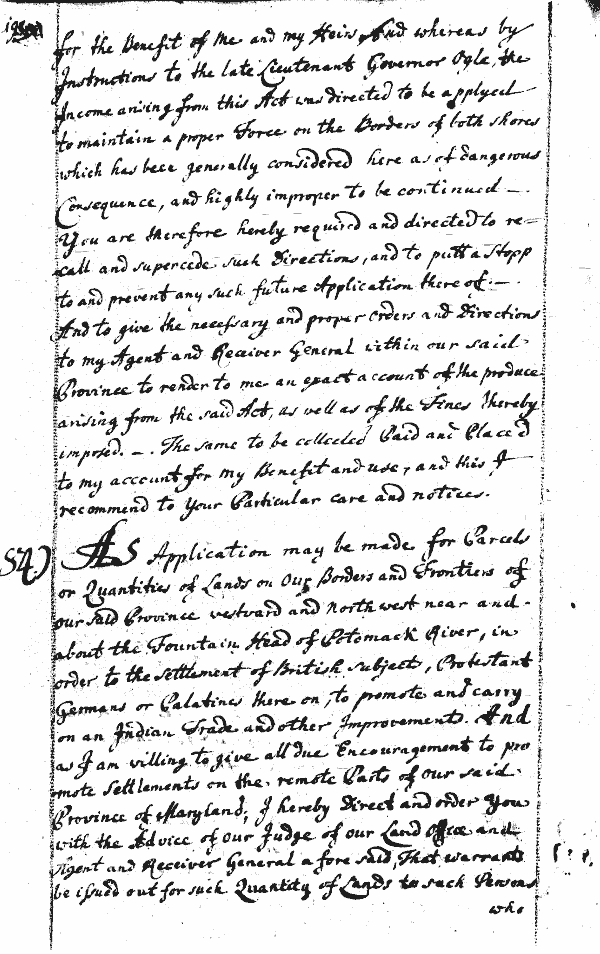 for the Benefit of Me and my Heirs, And whereas by
Instructions to the late Lieutenant Governor Ogle, the
Income arising from this Act was directed to be applyed
to maintain a proper Force on the Borders of both shores
which has been generally considered here as of dangerous
Consequence, and highly improper to be continued —.
You are therefore hereby required and directed to re=
call and supercede such Directions, and to putt a Stopp
to and prevent any such future Application there of —.
And to give the necessary and proper orders and Directions
to my Agent and Receiver General within our said
Province to render to me an exact account of the produce
arising from the said Act, as well as of the Fines thereby
imposed. —. The same to be collected Paid and Place'd
to my account for my Benefit and use, and this I
recommend to Your Particular care and notices.
54) As Application may be made for Parcels
or Quantities of Lands on Our Borders and Frontiers of
our said Province westward and North west near and
about the Fountain Head of Potomack River, in
order to the settlement of British subjects, Protestant
Germans or Palatines there on, to promote and carry
on an Indian Trade and other Improvements. And
as I am willing to give all due Encouragement to pro
mote settlements on the remote Parts of our said
Province of Maryland, I hereby Direct and order You
with the Advice of our Judge of our Land Office and
Agent and Receiver General a fore said, That warrants
be issued out for such Quantity of Lands to such Persons
who